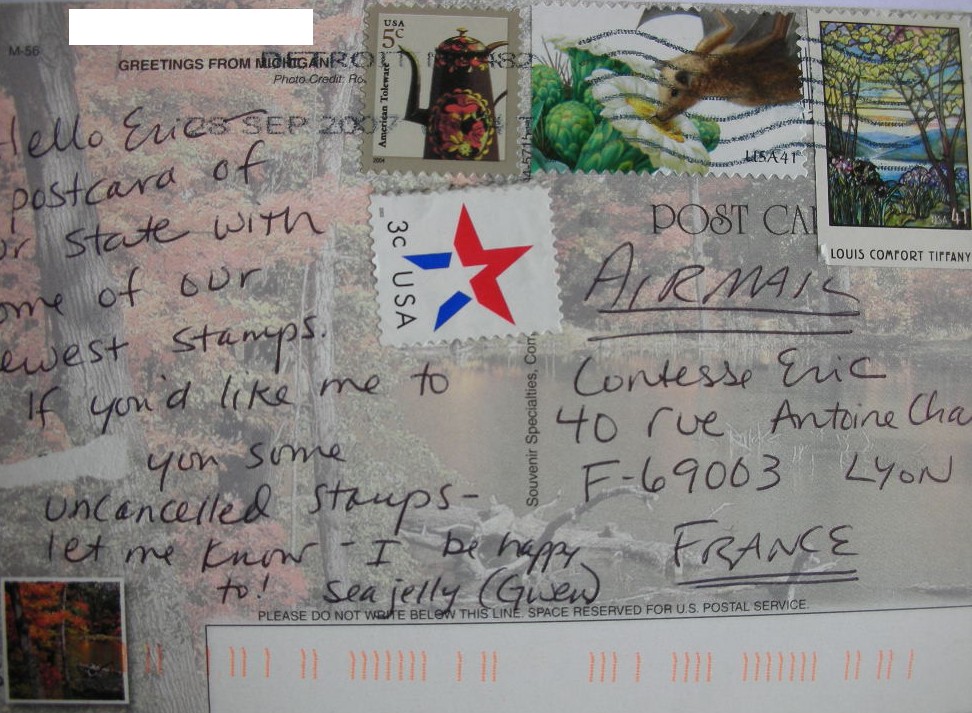 M-56
GREETINGS FROM MICHIGAN
Photo Credit: Ro
DETROIT 482
08 SEP 2007
USA
5c
American Toleware
2004
USA 41
USA 41
LOUIS COMFORT TIFFANY
3c USA
POST CA
Souvenir Specialties, Com
ello Eric
postcard of
ur state with
ome of our
ewest stamps.
If you'd like me to
you some
uncancelled stamps-
let me know - I be happy
to! Seajelly (Gwen)
AIRMAIL
Contesse Eric
40 rue Antoine Cha
F-69003 LYON
FRANCE
PLEASE DO NOT WRITE BELOW THIS LINE. SPACE RESERVED FOR U.S. POSTAL SERVICE.